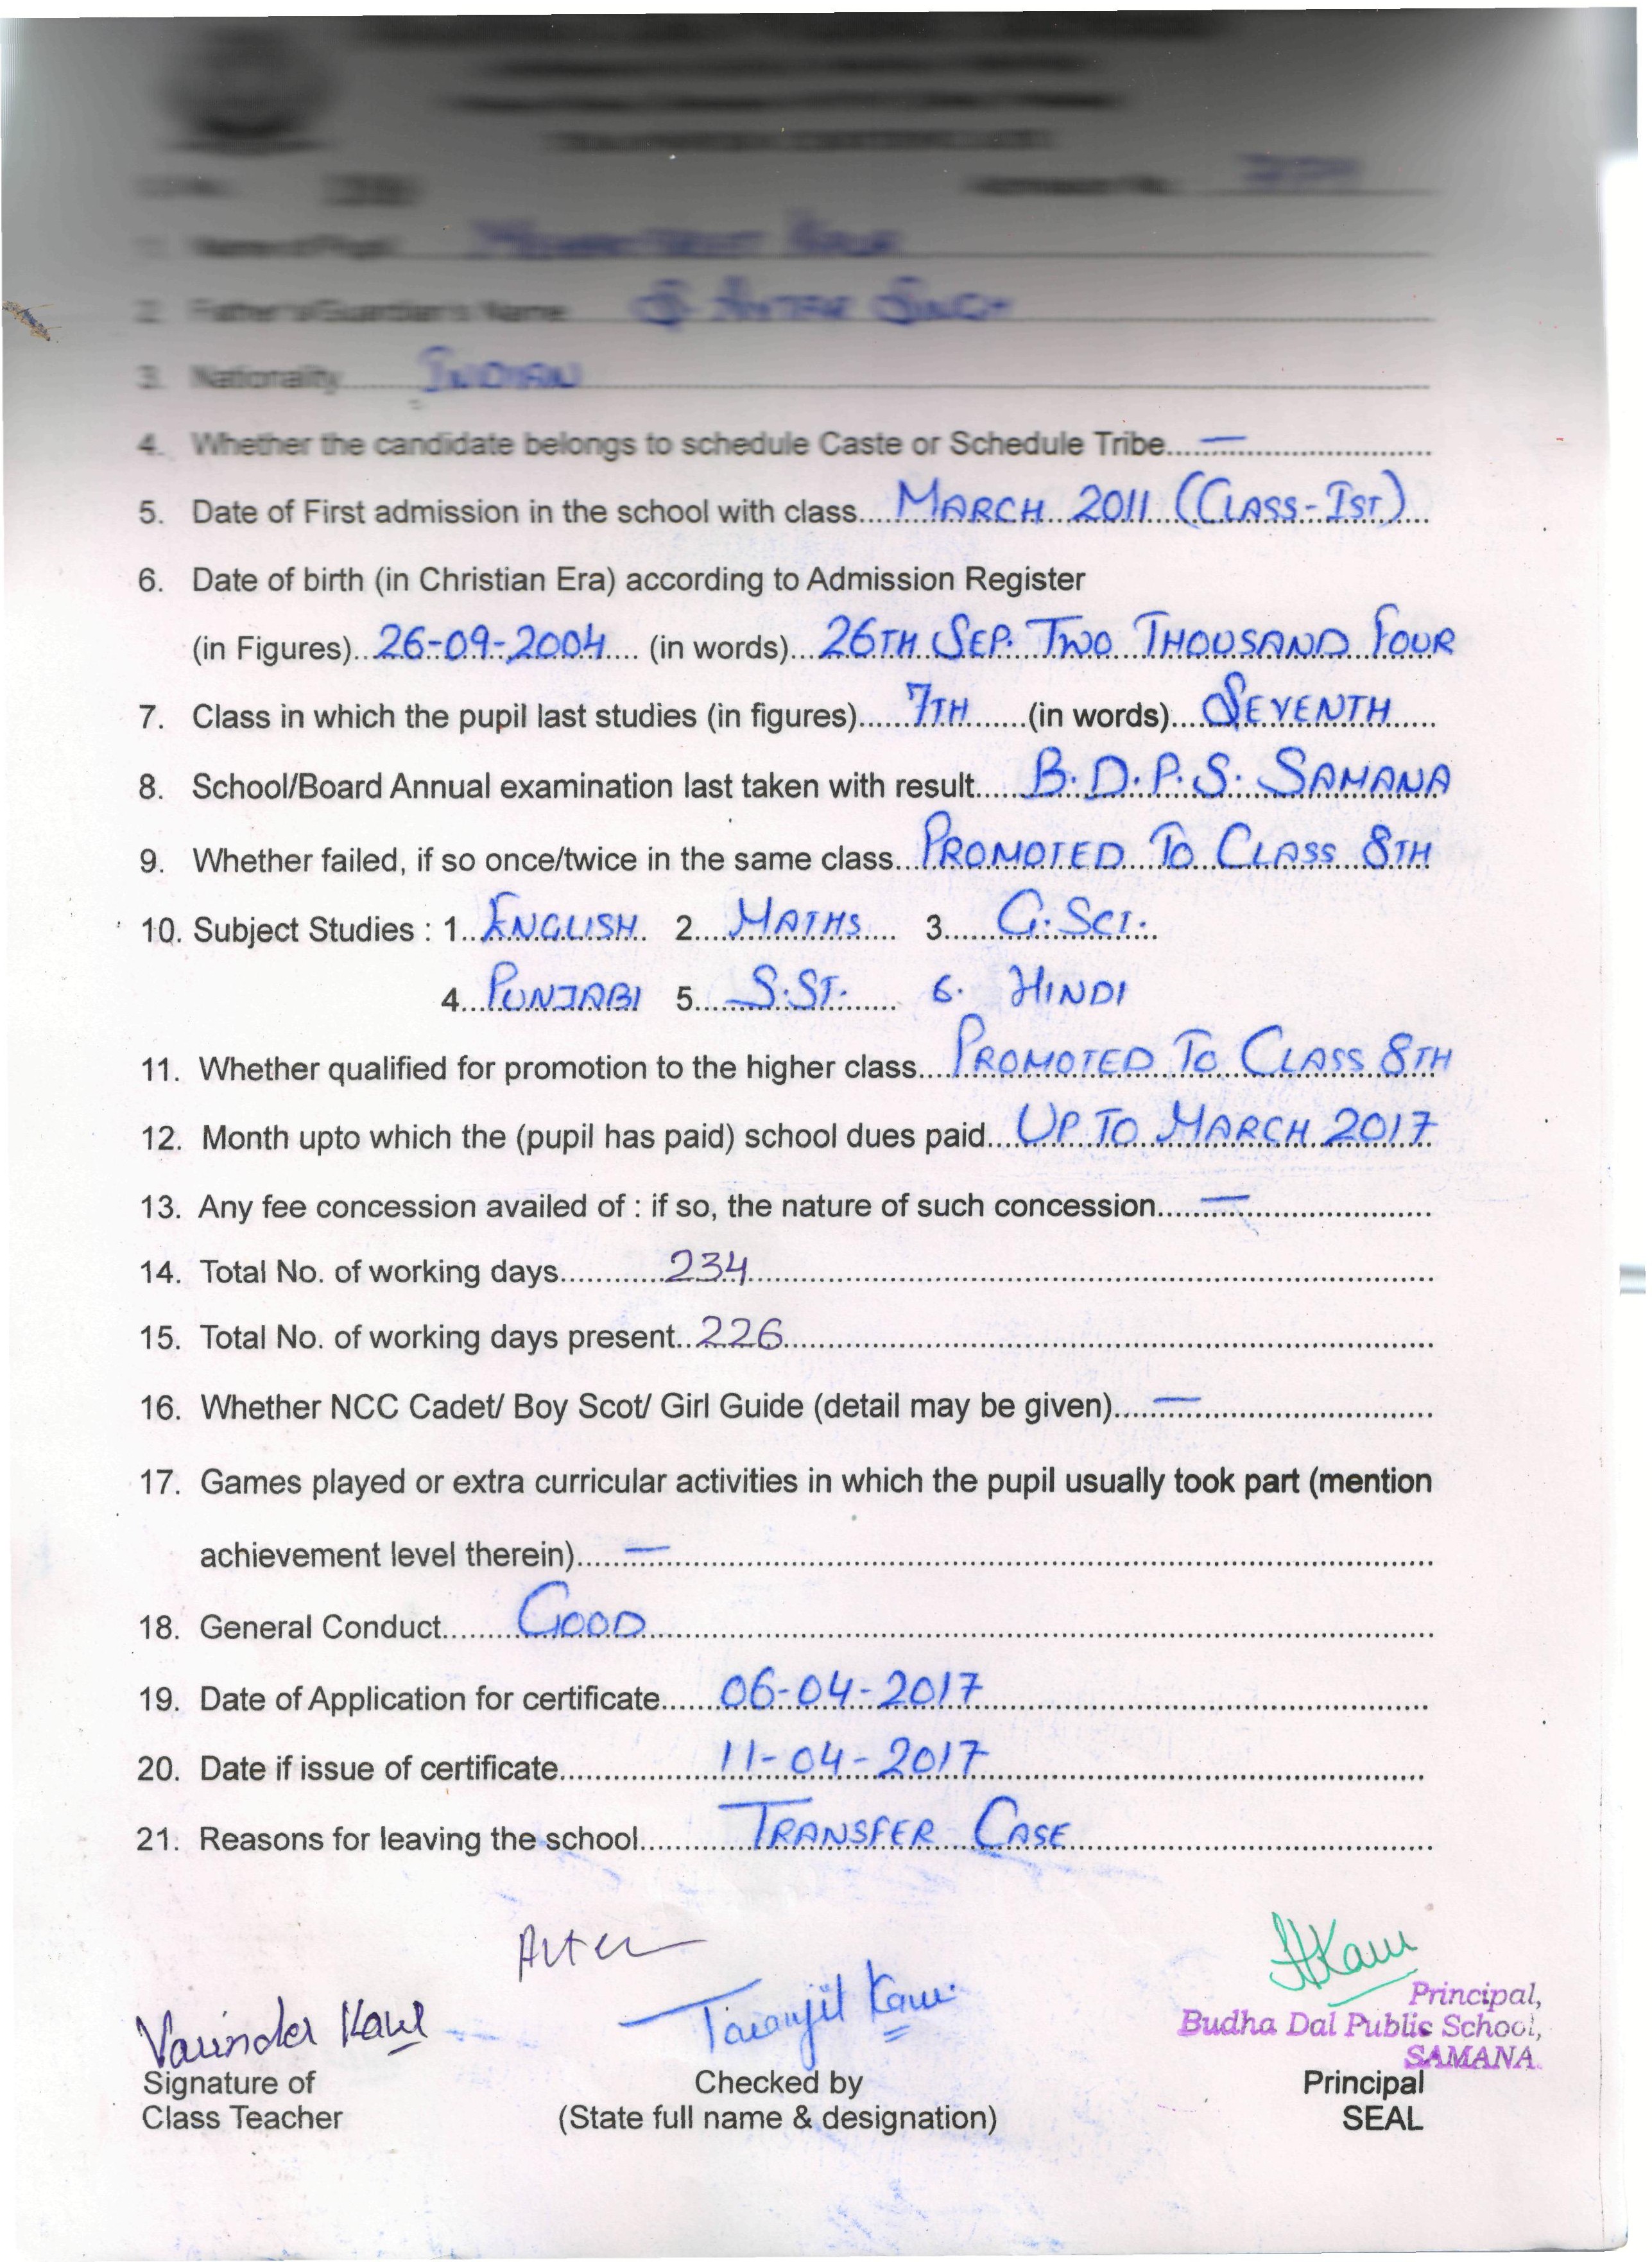 Name of Pupil
2. Father's/Guardian's Name SINGH
3. Nationality INDIAN
4. Whether the candidate belongs to schedule Caste or Schedule Tribe —
5. Date of First admission in the school with class MARCH 2011 (CLASS-IST)
6. Date of birth (in Christian Era) according to Admission Register
(in Figures) 26-09-2004 (in words) 26TH SEP. TWO THOUSAND FOUR
7. Class in which the pupil last studies (in figures) 7TH (in words) SEVENTH
8. School/Board Annual examination last taken with result B.D.P.S. SAMANA
9. Whether failed, if so once/twice in the same class PROMOTED TO CLASS 8TH
10. Subject Studies : 1. ENGLISH 2. MATHS 3. G.SCI.
4. PUNJABI 5. S.ST. 6. HINDI
11. Whether qualified for promotion to the higher class PROMOTED TO CLASS 8TH
12. Month upto which the (pupil has paid) school dues paid UP TO MARCH 2017
13. Any fee concession availed of : if so, the nature of such concession —
14. Total No. of working days 234
15. Total No. of working days present 226
16. Whether NCC Cadet/ Boy Scot/ Girl Guide (detail may be given) —
17. Games played or extra curricular activities in which the pupil usually took part (mention
achievement level therein) —
18. General Conduct GOOD
19. Date of Application for certificate 06-04-2017
20. Date if issue of certificate 11-04-2017
21. Reasons for leaving the school TRANSFER CASE
Varinder Kaur
Taranjit Kaur
Principal,
Budha Dal Public School,
SAMANA.
Signature of Checked by Principal
Class Teacher (State full name & designation) SEAL